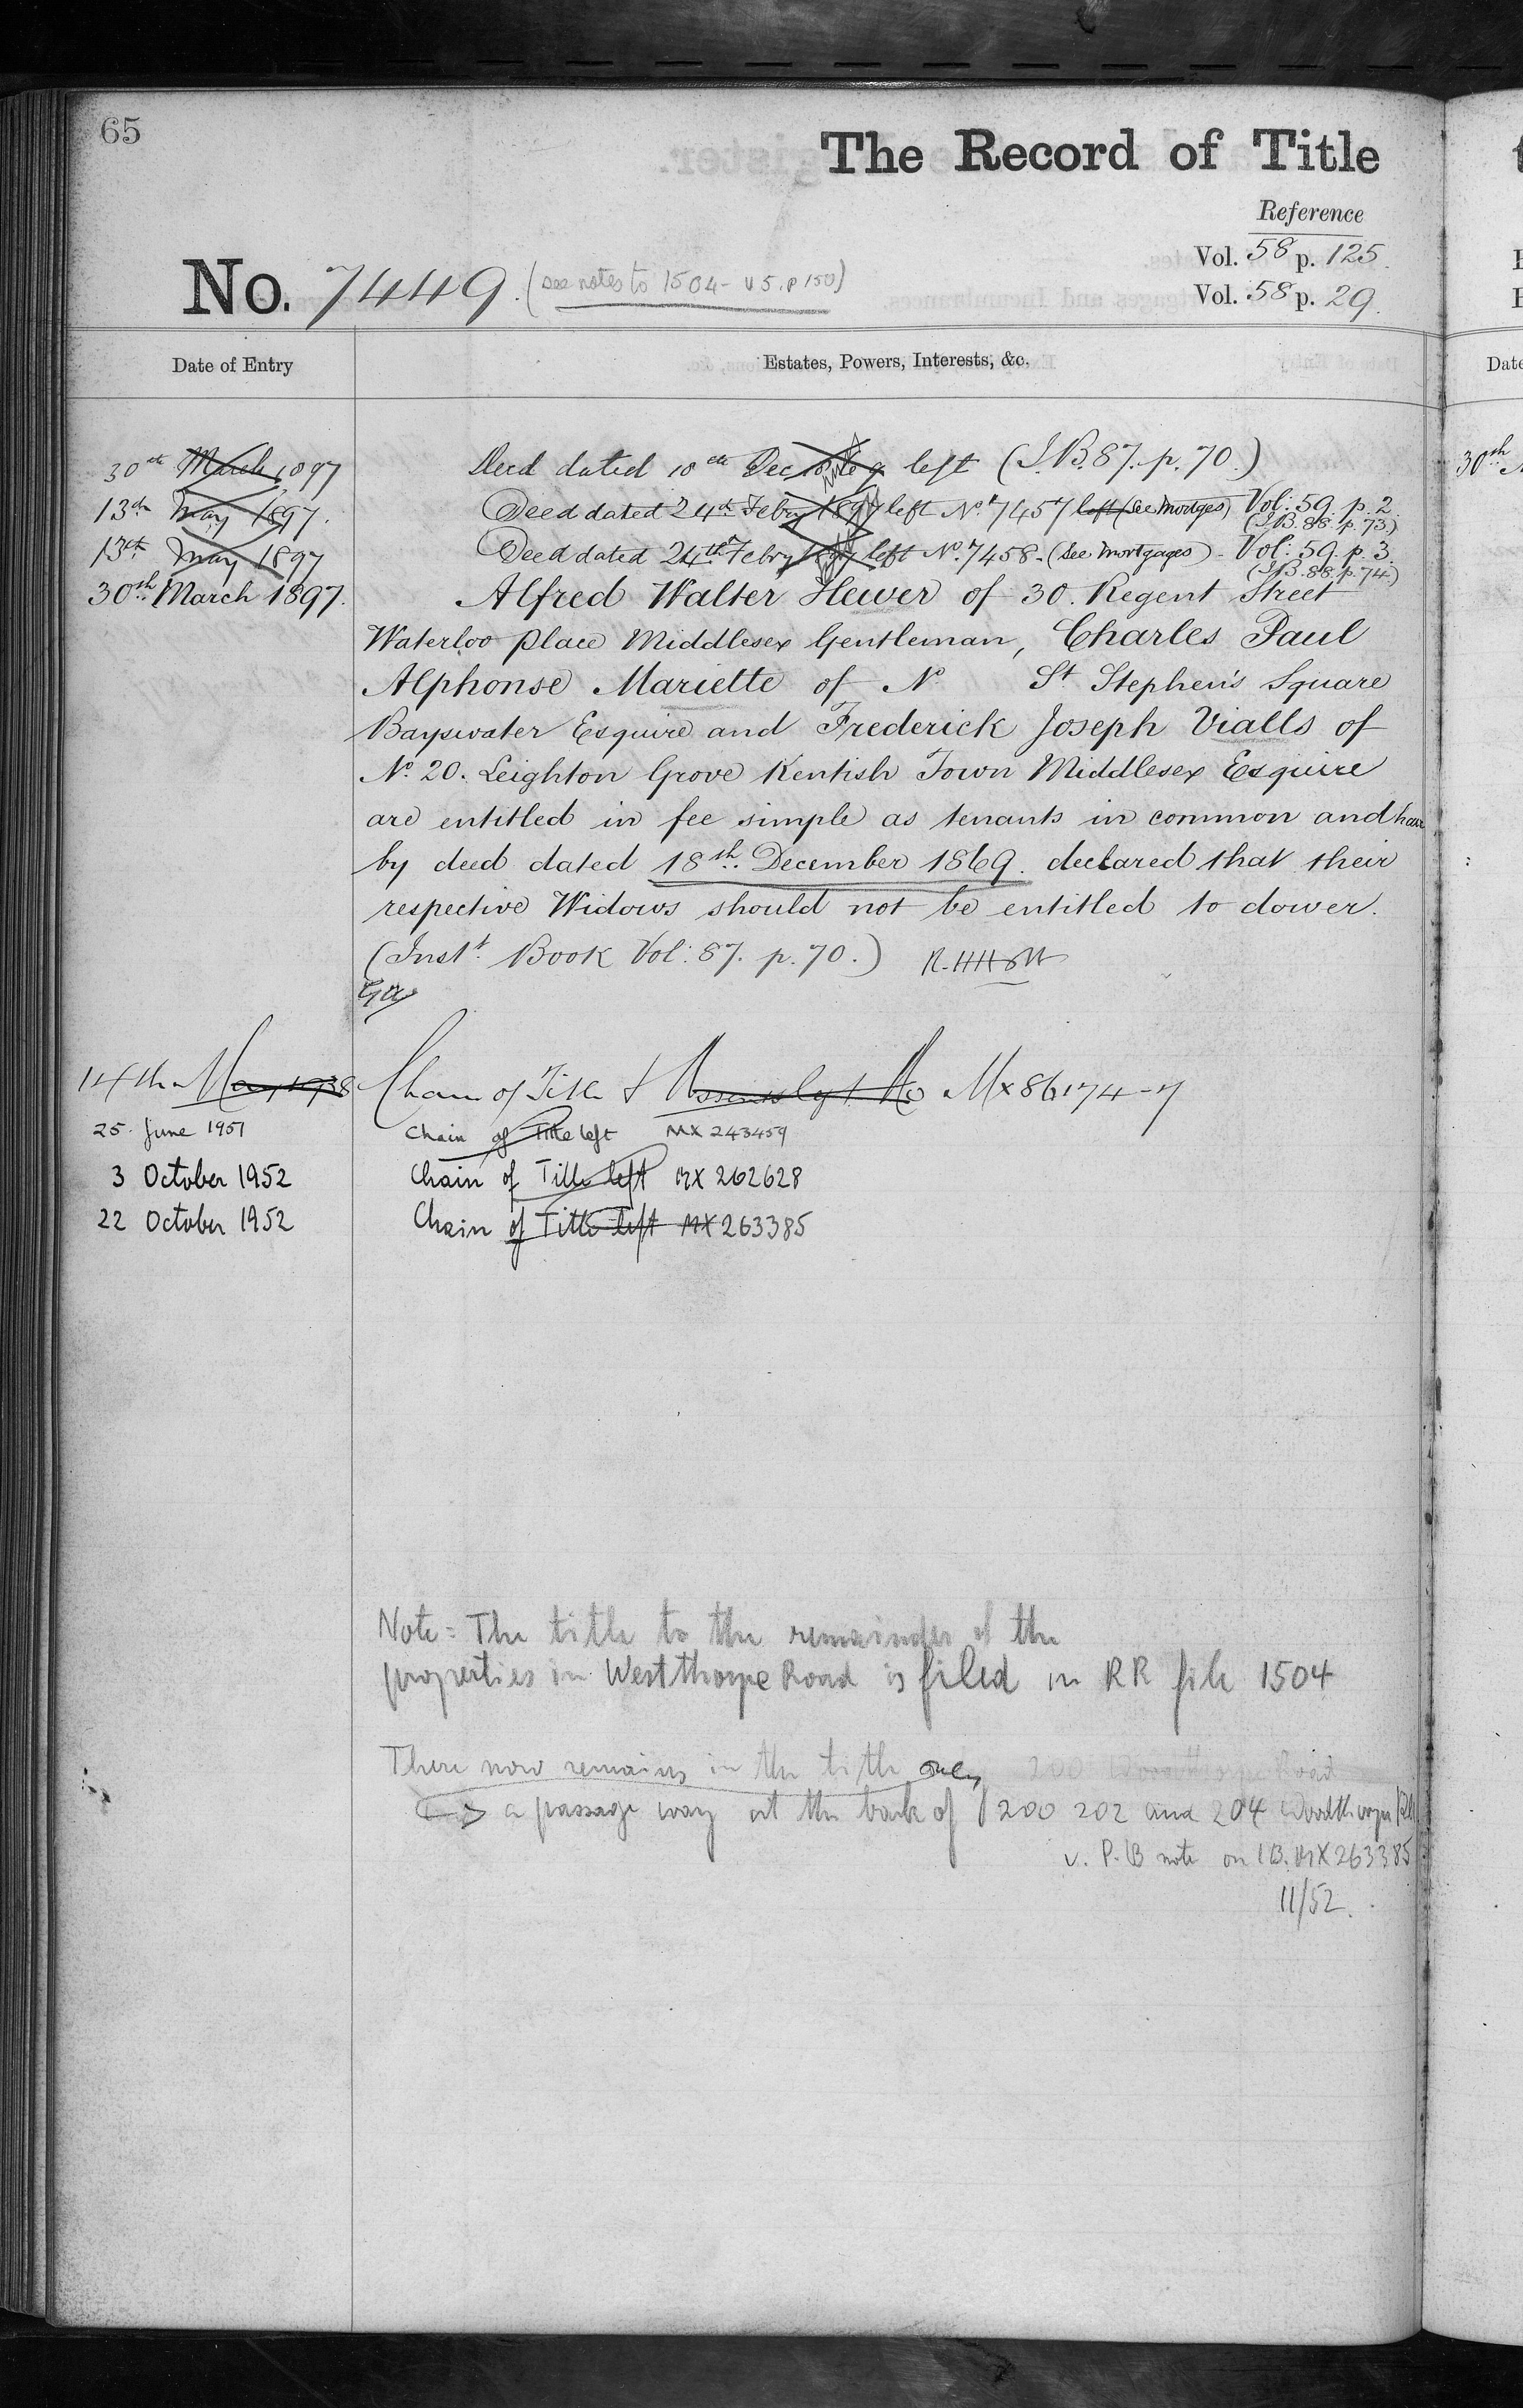 65
The Record of Title
Reference
Vol. 58 p. 125.
Vol. 58 p. 29.
No. 7449. (see notes to 1504 - v 5. p 150)
Date of Entry
Estates, Powers, Interests, &c.
30th March 1897 Deed dated 10th Dec left (I.B. 87. p. 70.)
13th May 1897. Deed dated 24th Febry 1897 left No. 7457 left (see Mortges) Vol: 59. p. 2.
(I.B. 88. p. 73)
13th May 1897 Deed dated 24th Febry 1897 left No. 7458 - (see mortgages) - Vol: 59. p. 3.
(I.B. 88. p. 74.)
30th March 1897. Alfred Walter Hewer of 30. Regent Street
Waterloo Place Middlesex Gentleman, Charles Paul
Alphonse Mariette of No St Stephen's Square
Bayswater Esquire and Frederick Joseph Vialls of
No. 20. Leighton Grove Kentish Town Middlesex Esquire
are entitled in fee simple as tenants in common and have
by deed dated 18th December 1869. declared that their
respective Widows should not be entitled to dower.
(Inst. Book Vol: 87. p. 70.)
14th May 1938 Chain of Title & Mx 86174-7
25. June 1951 Chain of Title left MX 243459
3 October 1952 Chain of Title left MX 262628
22 October 1952 Chain of Title left MX 263385
Note = The title to the remainder of the
properties in Westthorpe Road is filed in RR file 1504
There now remains in the title only 200 Road
a passage way at the back of 200 202 and 204 Rd
v. P.B note on I.B. MX 263385
11/52.
30th
Date